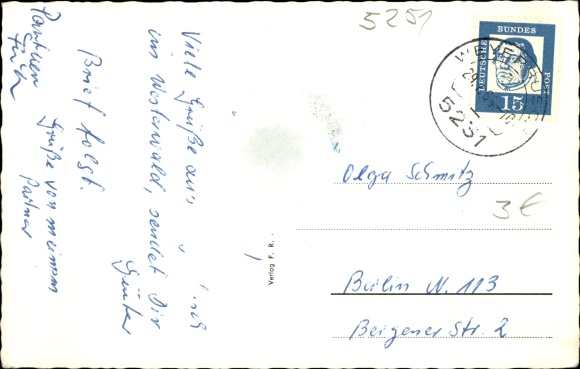 5251
Viele Grüße aus
im Westerwald, sendet Dir
Günter
Brief folgt.
Grüße von meinem
Partner
DEUTSCHE
BUNDES
POST
15
5231
Olga Schmitz
3€
Berlin N. 113
Bergener Str. 2
Verlag F. R.